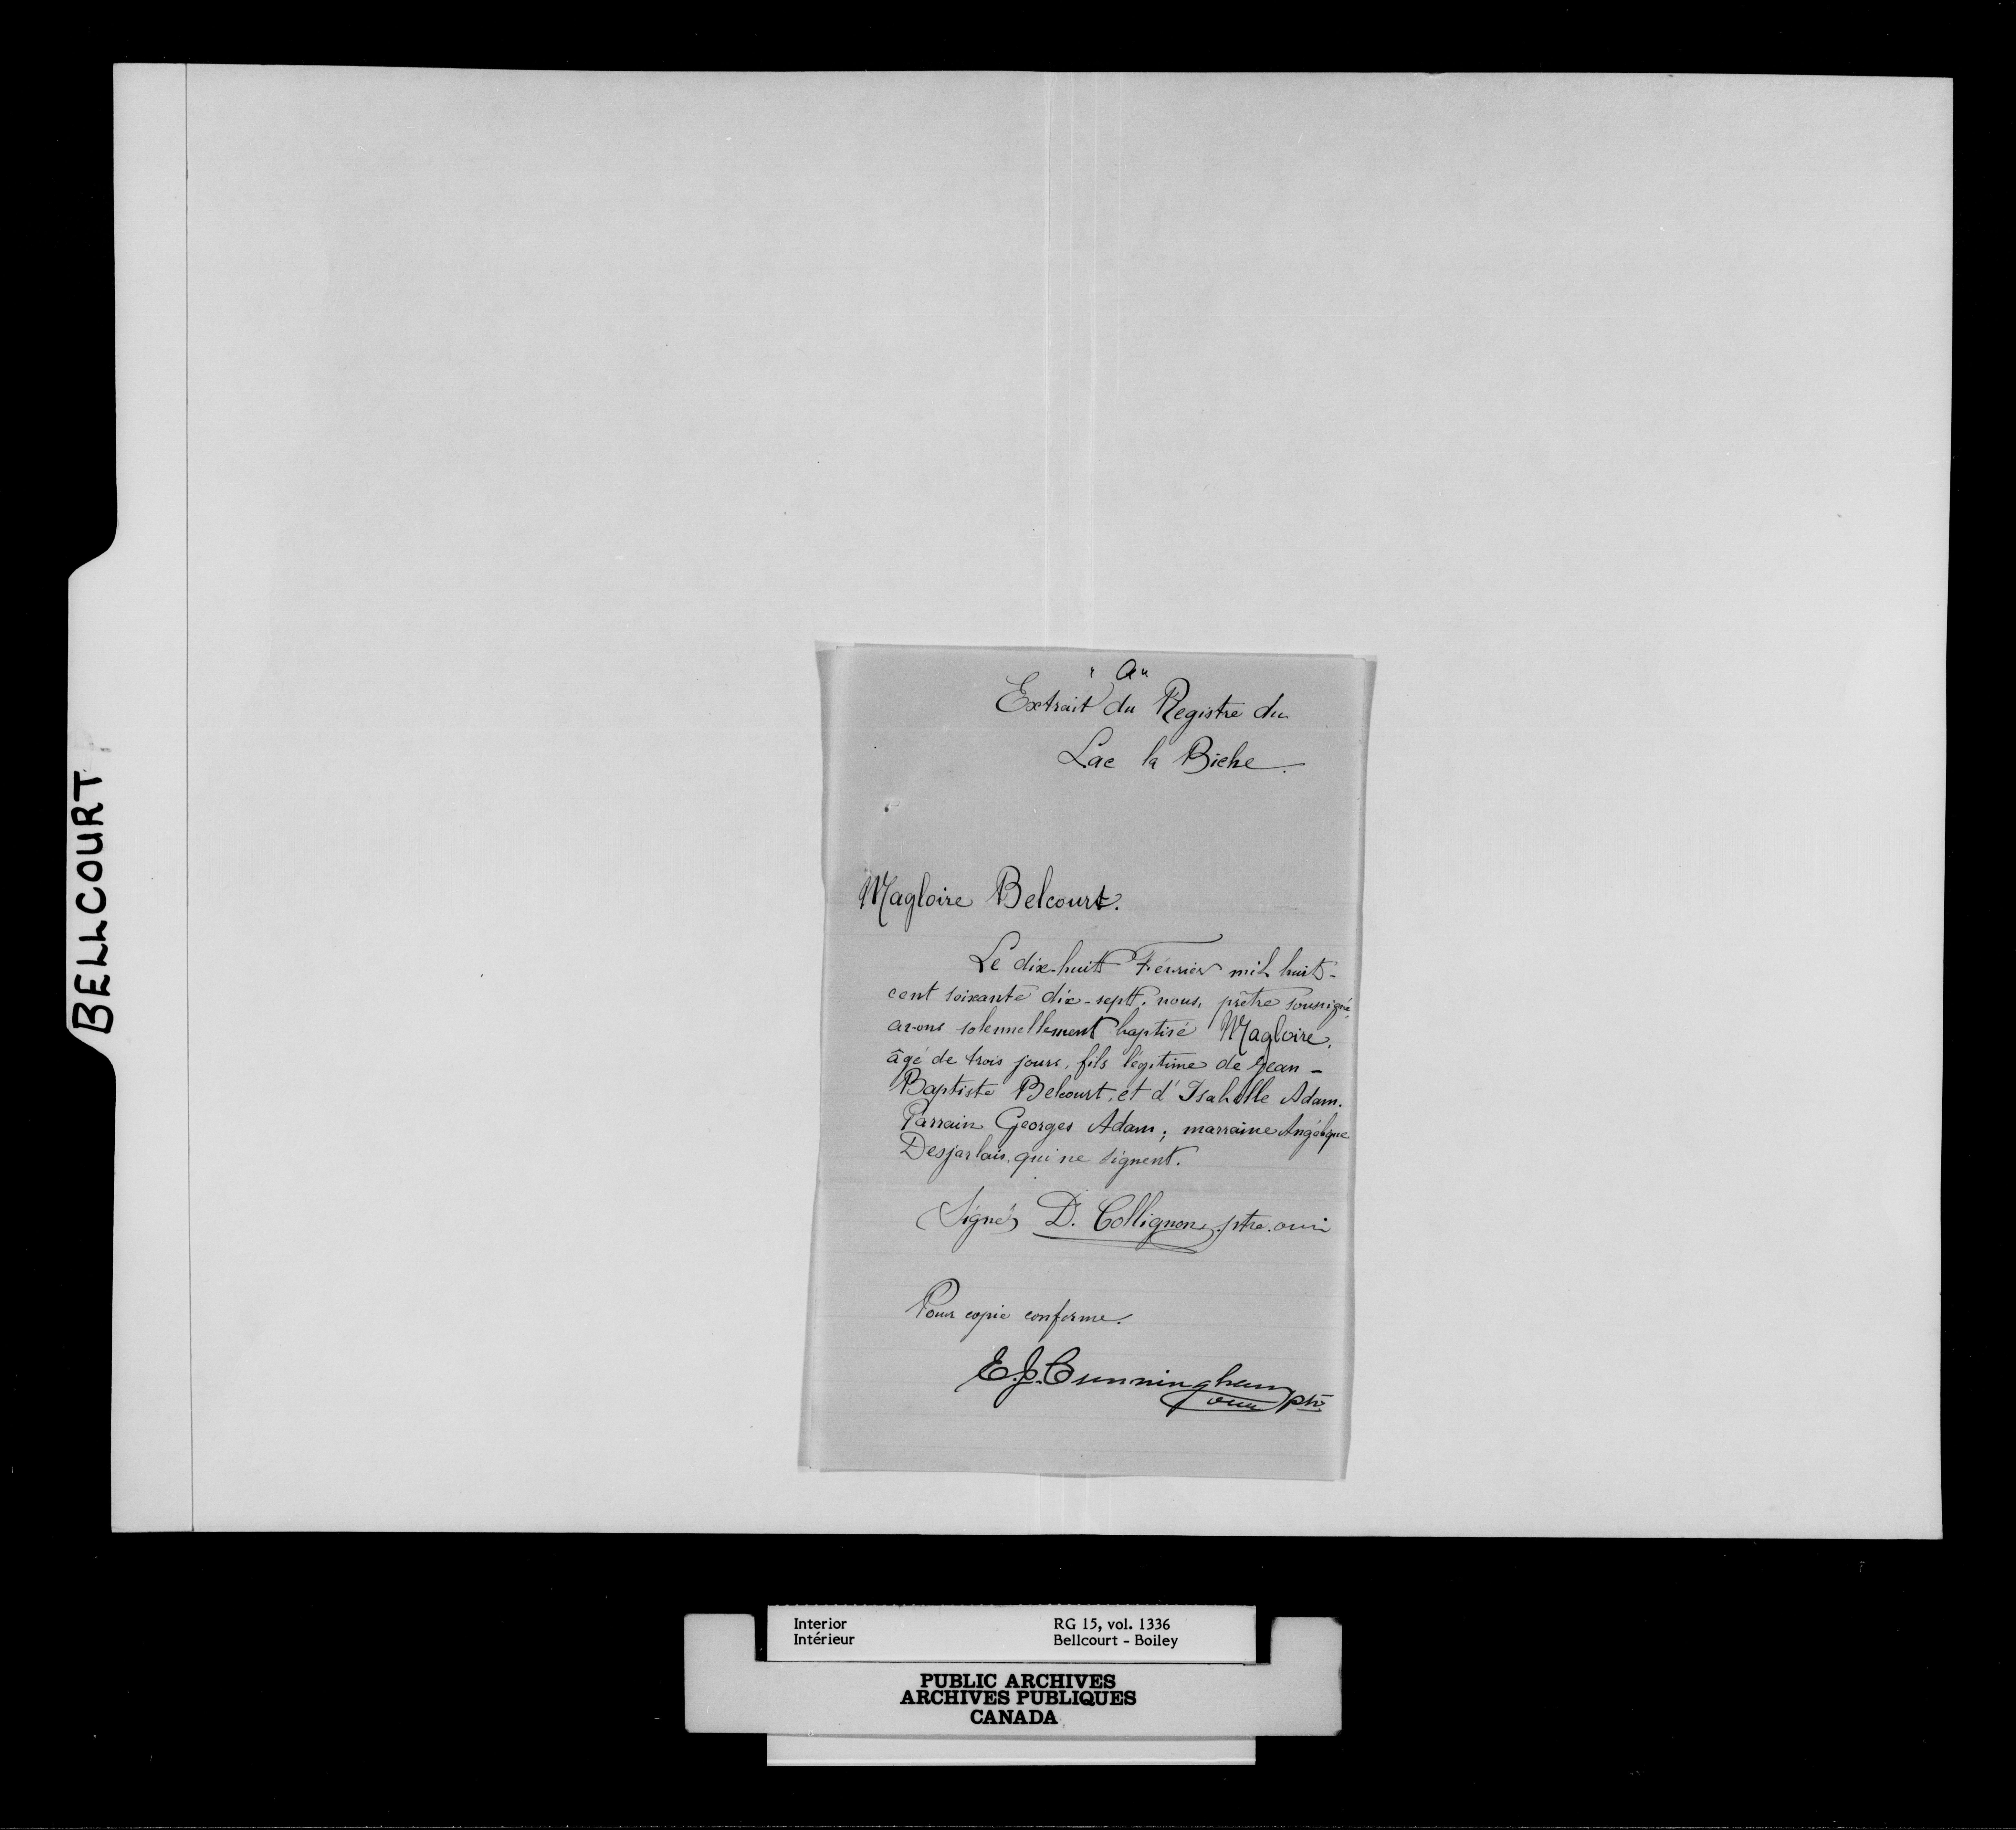 BELLCOURT
"a"
Extrait du Registre du
Lac la Biche.
Magloire Belcourt.
Le dix-huit Février mil huit-
cent soixante dix-sept, nous, prêtre soussigné,
avons solennellement baptisé Magloire,
âgé de trois jours, fils légitime de Jean-
Baptiste Belcourt, et d'Isabelle Adam.
Parrain Georges Adam; marraine Angélique
Desjarlais, qui ne signent.
(Signé) D. Collignon, ptre. omi
Pour copie conforme.
E. J. Cunningham
omi ptr.
Interior RG 15, vol. 1336
Intérieur Bellcourt - Boiley
PUBLIC ARCHIVES
ARCHIVES PUBLIQUES
CANADA